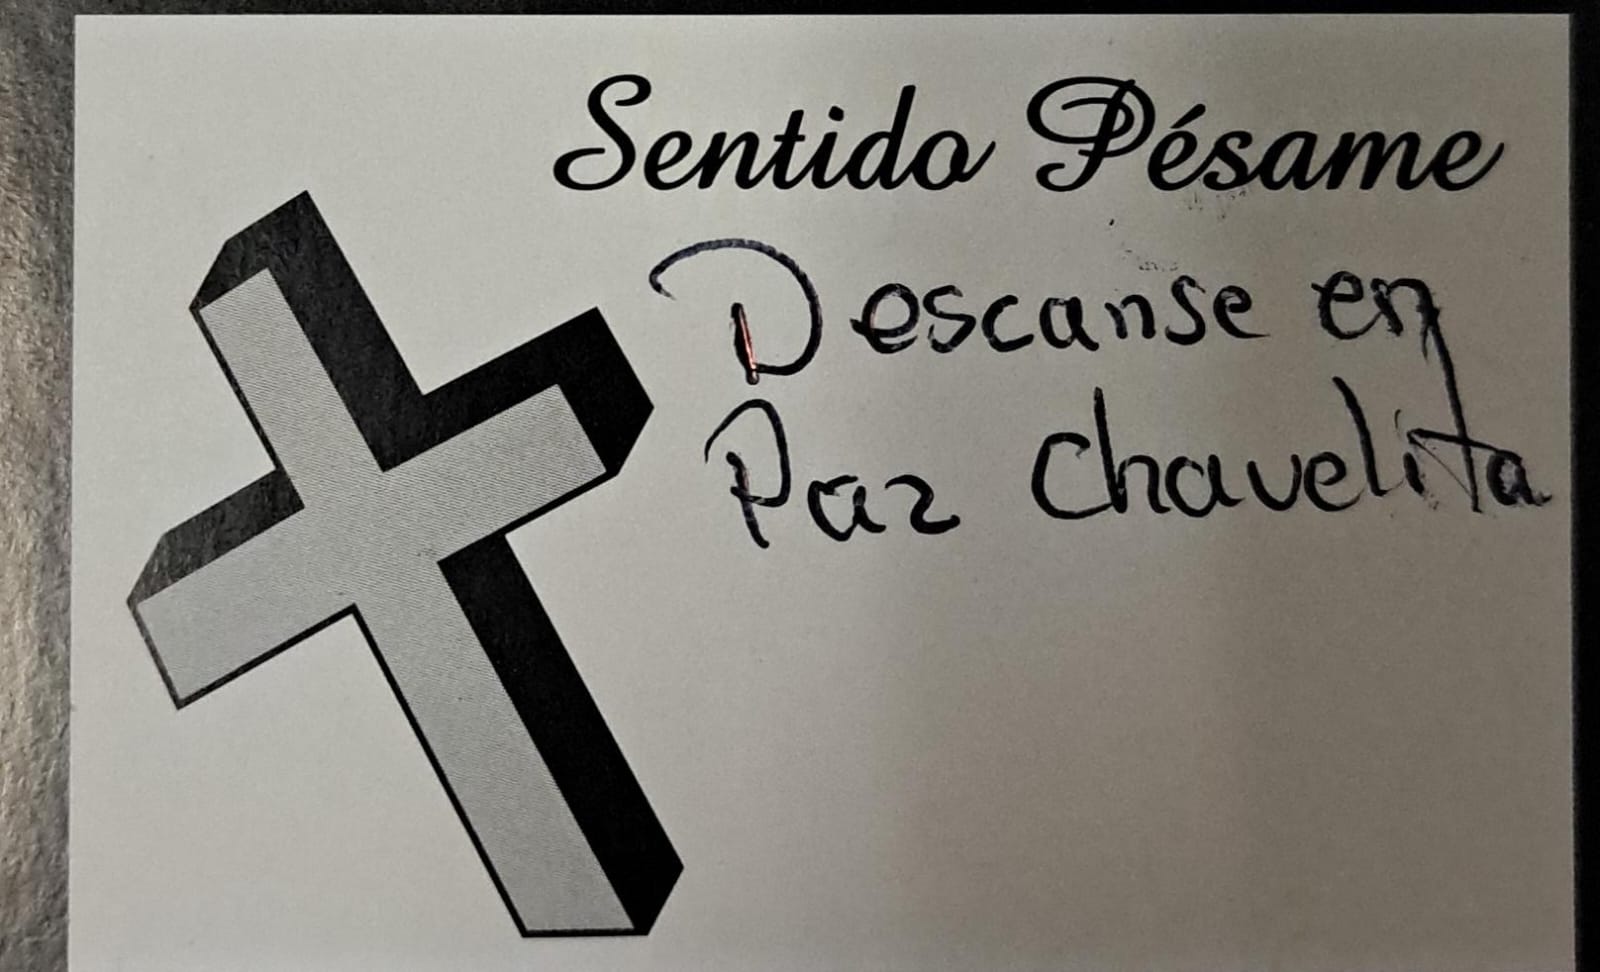 Sentido Pésame
Descanse en
Paz Chavelita